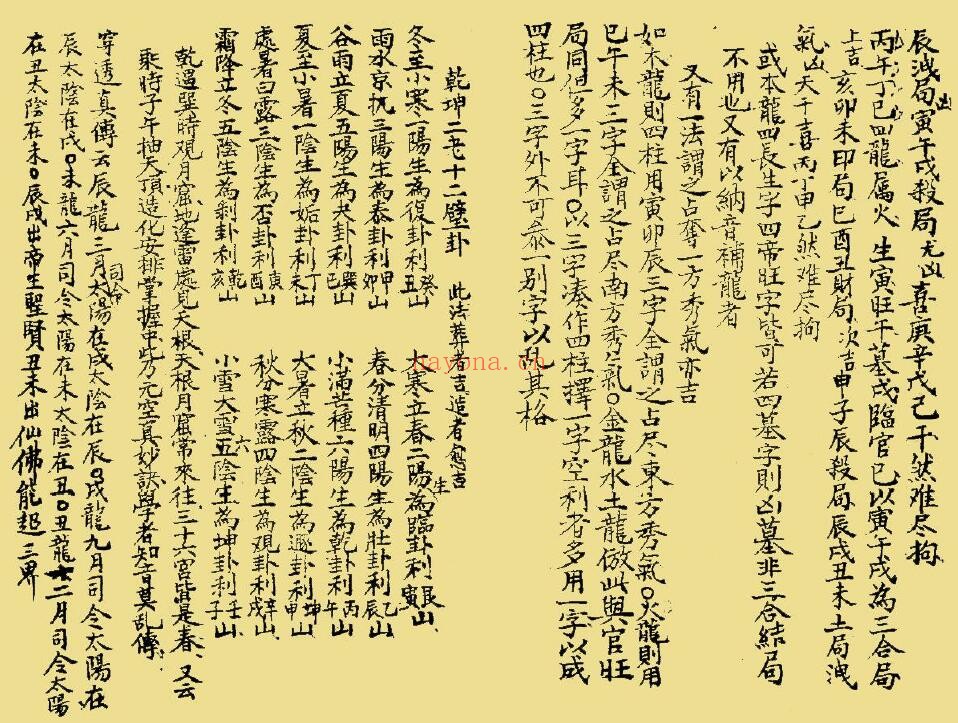 辰洩局寅午戌殺局尤凶喜庚辛戊己干然难尽拘
丙午丁巳四龍属火生寅旺午墓戌臨官巳以寅午戌為三合局
上吉亥卯未印局巳酉丑財局次吉申子辰殺局辰戌丑未土局洩
氣凶天干喜丙丁甲乙然难尽拘
或本龍四長生字四帝旺字皆可若四墓字則凶墓非三合結局
不用也又有以納音補龍者
又有一法謂之占奪一方秀氣亦吉
如木龍則四柱用寅卯辰三字全謂之占尽東方秀氣○火龍則用
巳午未三字全謂之占尽南方秀氣○金龍水土龍倣此與官旺
局同但多一字耳○以三字湊作四柱擇一字空利者多用一字以成
四柱也○三字外不可忝一別字以破其格
乾坤二老十二璧卦 此法葬者吉造者愈吉
冬至小寒一陽生為復卦利癸丑山 大寒立春二陽生為臨卦利艮寅山
雨水京执三陽生為泰卦利甲卯山 春分清明四陽生為壯卦利乙辰山
谷雨立夏五陽生為夬卦利巽巳山 小滿芒種六陽生為乾卦利丙午山
夏至小暑一陰生為姤卦利丁未山 大暑立秋二陰生為遯卦利坤申山
處暑白露三陰生為否卦利庚酉山 秋分寒露四陰生為观卦利辛戌山
霜降立冬五陰生為剝卦利乾亥山 小雪大雪六陰生為坤卦利壬子山
乾遇巽時观月窟地逢雷處見天根天根月窟常來往三十六宮皆是春又云
乘時子午抽天頂造化安排掌握中此乃元空真妙訣學者知音莫乱傳
穿透真傳云辰龍三月司令太陽在戌太陰在辰○戌龍九月司令太陽在
辰太陰在戌○未龍六月司令太陽在未太陰在丑○丑龍十二月司令太陽
在丑太陰在未○辰戌出帝生聖賢丑未出仙佛能超三界
nayona.cn